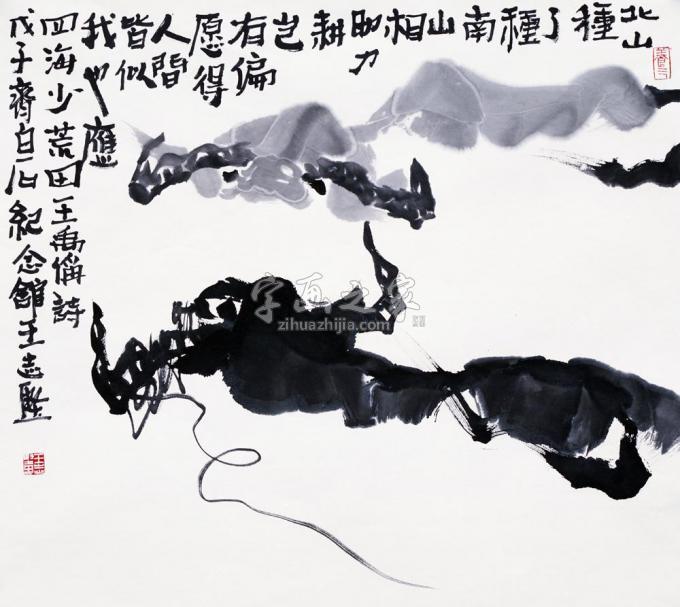 北山
種
了
種
南
山
相
助力
耕
岂
有偏
愿得
人間
皆似
我也應
四海少荒田王禹偁詩
戊子齊白石紀念館王志堅
字画之家
zihuazhijia.com